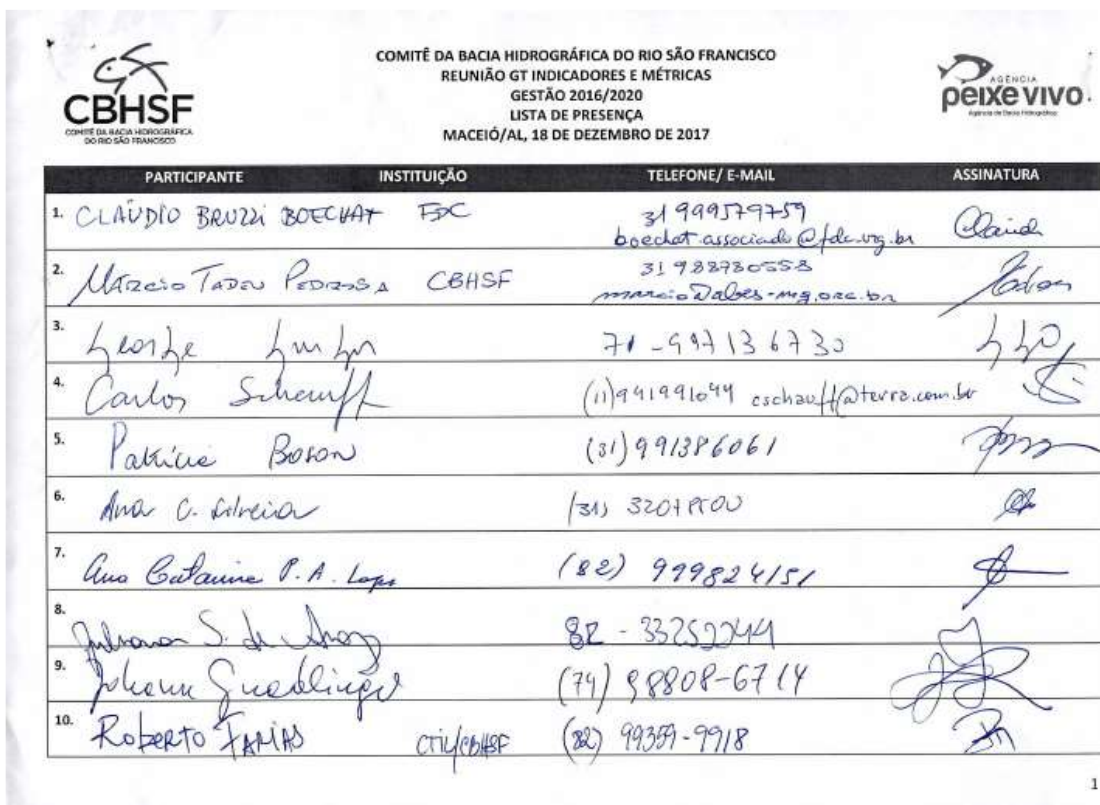 CBHSF
COMITÊ DA BACIA HIDROGRÁFICA
DO RIO SÃO FRANCISCO
COMITÊ DA BACIA HIDROGRÁFICA DO RIO SÃO FRANCISCO
REUNIÃO GT INDICADORES E MÉTRICAS
GESTÃO 2016/2020
LISTA DE PRESENÇA
MACEIÓ/AL, 18 DE DEZEMBRO DE 2017
AGÊNCIA
peixe vivo
Agência de Bacia Hidrográfica
PARTICIPANTE INSTITUIÇÃO TELEFONE/ E-MAIL ASSINATURA
1. CLAÚDIO BRUZZI BOECHAT FDC 31 999579759
boechat.associado@fdc.org.br
2. MÁRCIO TADEU PEDROSA CBHSF 31 988730558
marcio@abes-mg.org.br
3. 71-997136730
4. Carlos Schauff (11)941991044 cschauff@terra.com.br
5. Patrícia Boson (31)991386061
6. Ana C. Silveira (31)
7. Ana Catarina P. A. Lopes (82) 999824151
8. Juliana S. de Araujo 82 -
9. Johann Gnadlinger (74) 98808-6714
10. ROBERTO FARIAS CTIL/CBHSF (82) 99359-9918
1